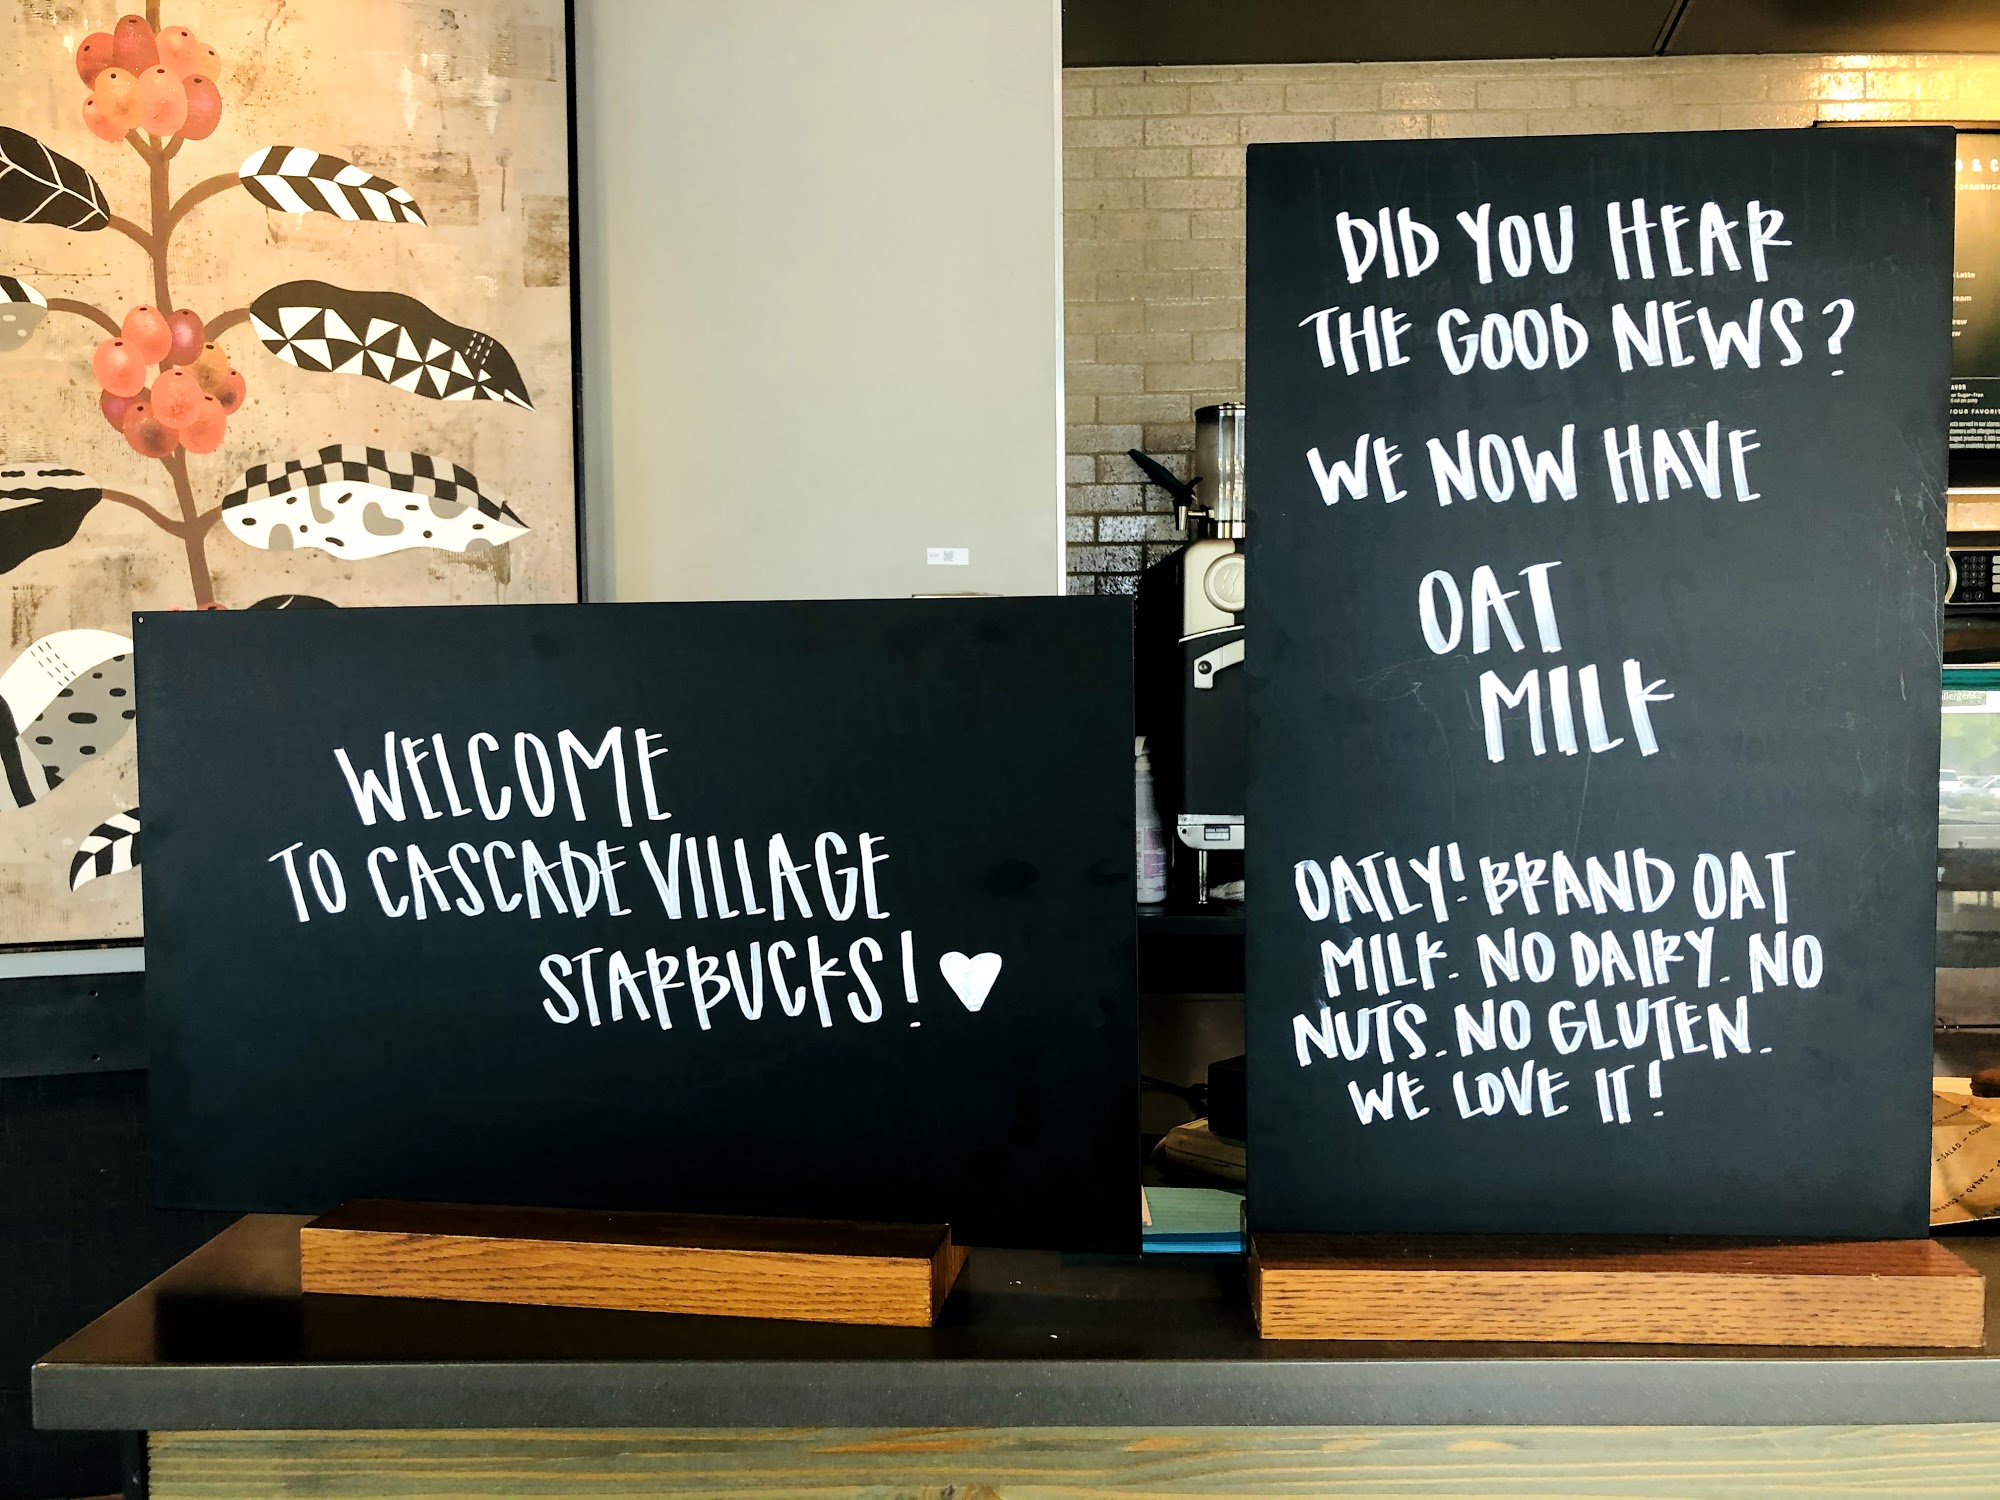 WELCOME
TO CASCADE VILLAGE
STARBUCKS!
DID YOU HEAR
THE GOOD NEWS?
WE NOW HAVE
OAT
MILK
OATLY! BRAND OAT
MILK. NO DAIRY. NO
NUTS. NO GLUTEN.
WE LOVE IT!
Latte
YOUR FAVORIT
or Sugar-Free
SALAD